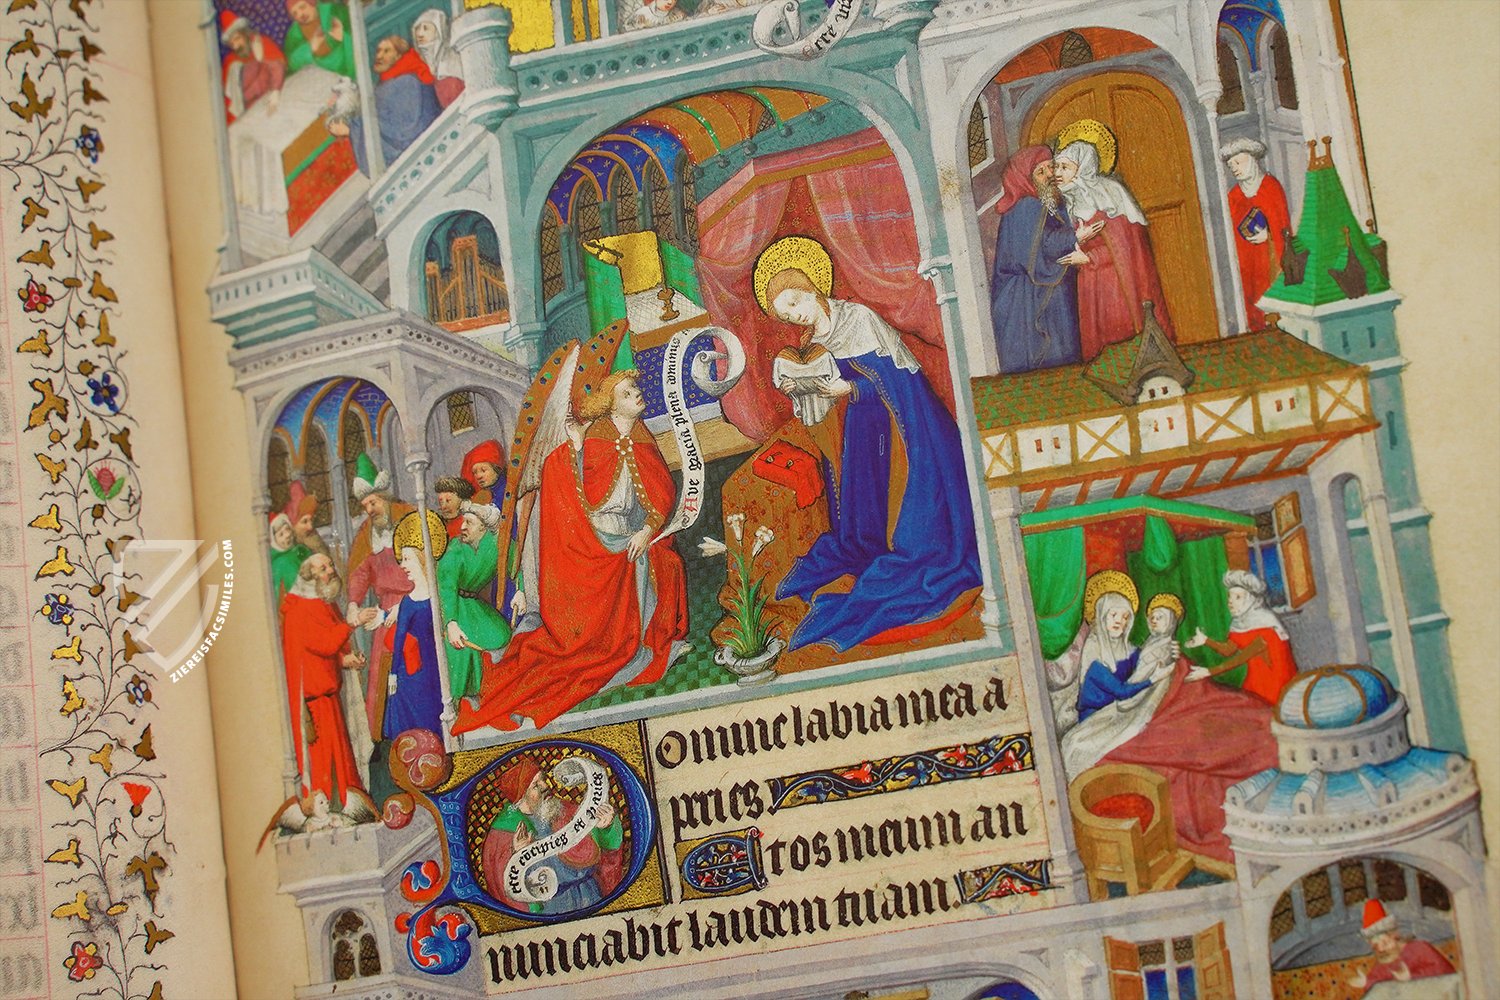 Ave gracia plena dominus
Domine labia mea a
peries
Et os meum an
nunciabit laudem tuam.
ecce concipies et paries
ZIEREISFACSIMILES.COM